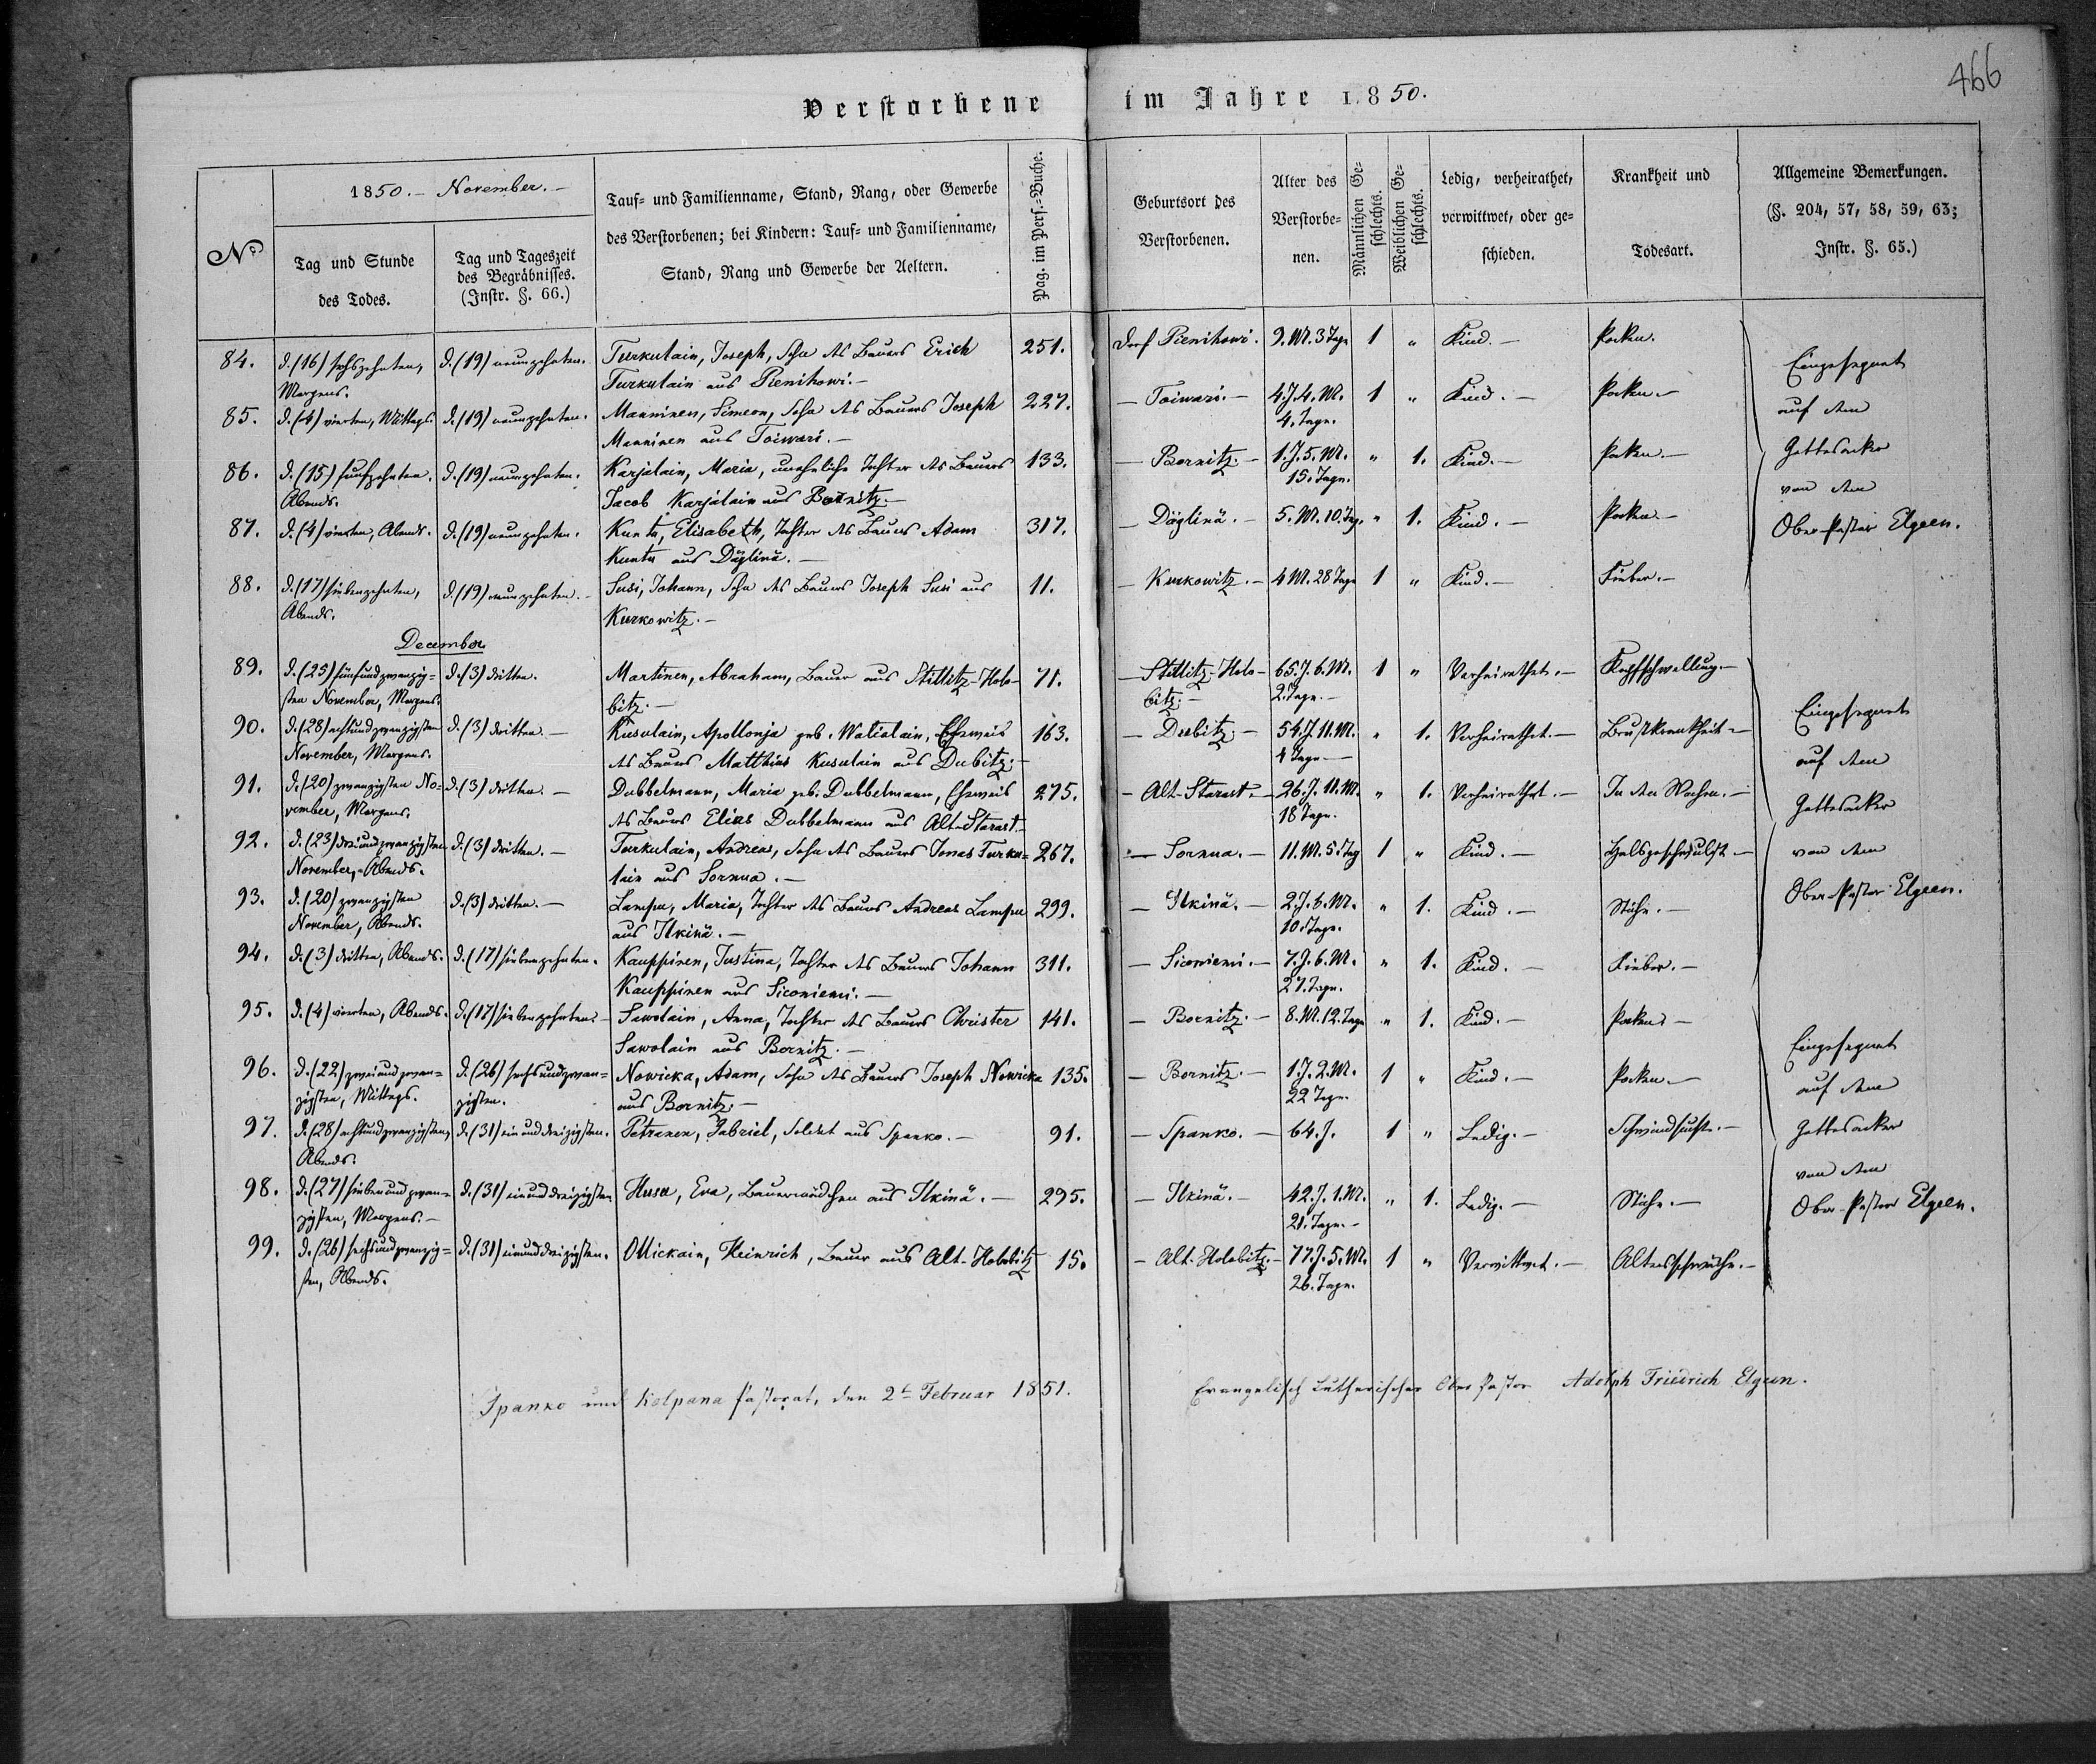 466
Verstorbene im Jahre 1850.
No
1850. – November. –
Tag und Stunde des Todes.
Tag und Tageszeit des Begräbnisses. (Instr. §. 66.)
Tauf- und Familienname, Stand, Rang, oder Gewerbe
des Verstorbenen; bei Kindern: Tauf- und Familienname,
Stand, Rang und Gewerbe der Aeltern.
Pag. im Pers.-Buche.
Geburtsort des Verstorbenen.
Alter des Verstorbe-nen.
Männlichen Ge-schlechts.
Weiblichen Ge-schlechts.
Ledig, verheirathet, verwittwet, oder ge-schieden.
Krankheit und Todesart.
Allgemeine Bemerkungen.
(§. 204, 57, 58, 59, 63;
Instr. §. 65.)
84. d. (16) sechszehnten, d. (19) neunzehnten. Turkulain, Joseph, Sohn des Bauers Erich 251. Dorf Pienikowi. 9. M. 3 Tage 1 " Kind. – Pocken.
Morgens. Turkulain aus Pienikowi. –
85. d. (4) vierten, Mittags. d. (19) neunzehnten. Manninen, Simeon, Sohn des Bauers Joseph 227. – Toiwari. – 4. J. 4. M. 1 " Kind. – Pocken. –
Manninen aus Toiwari. – 4. Tage.
86. d. (15) funfzehnten. d. (19) neunzehnten. Karjalain, Maria, uneheliche Tochter des Bauers 133. – Bornitz. – 1. J. 5. M. " 1. Kind. – Pocken. –
Abends. Jacob Karjalain aus Bornitz. – 15. Tage.
87. d. (4) vierten, Abends. d. (19) neunzehnten. Kuntu, Elisabeth, Tochter des Bauers Adam 317. – Däglinä. – 5. M. 10. Tag. " 1. Kind. – Pocken. –
Kuntu aus Däglinä. –
88. d. (17) siebenzehnten, d. (19) neunzehnten. – Susi, Johann, Sohn des Bauers Joseph Susi aus 11. – Kurkowitz. – 4 M. 28 Tage 1 " Kind. – Fieber. –
Abends. Kurkowitz. –
Eingesegnet
auf dem
Gottesacker
von dem
Ober-Pastor Elgeen.
December
89. d. (25) fünfundzwanzig- d. (3) dritten. Martinen, Abraham, Bauer aus Stillitz-Holo- 71. – Stillitz-Holo- 65. J. 6. M. 1 " Verheirathet. – Kopfschwellung. –
sten November, Morgens. bitz. – bitz. – 2. Tage. –
90. d. (28) achtundzwanzigsten d. (3) dritten. – Kusulain, Apollonja geb. Walialain, Eheweib 163. – Dubitz. – 54. J. 11. M. " 1. Verheirathet. – Brustkrankheit. –
November, Morgens. des Bauers Matthias Kusulain aus Dubitz. – 4 Tage –
91. d. (20) zwanzigsten No- d. (3) dritten. – Dubbelmann, Maria geb. Dubbelmann, Eheweib 275. – Alt-Starost. – 26. J. 11. M. " 1. Verheirathet. – In den Wochen. –
vember, Morgens. des Bauers Elias Dubbelmann aus Alt-Starost. – 18 Tage.
92. d. (23) dreiundzwanzigsten d. (3) dritten. – Turkulain, Andreas, Sohn des Bauers Jonas Turku- 267. – Sornua. – 11. M. 5. Tag 1 " Kind. – Halsgeschwulst –
November, Abends. lain aus Sornua. –
93. d. (20) zwanzigsten d. (3) dritten. – Lampu, Maria, Tochter des Bauers Andreas Lampu 299. – Ilkinä. – 2. J. 6. M. " 1. Kind. – Ruhr. –
November, Abends. aus Ilkinä. – 10. Tage.
Eingesegnet
auf dem
Gottesacker
von dem
Ober-Pastor Elgeen.
94. d. (3) dritten, Abends. d. (17) siebenzehnten. Kauppinen, Justina, Tochter des Bauers Johann 311. – Siconiemi. – 7. J. 6. M. " 1. Kind. – Fieber. –
Kauppinen aus Siconiemi. – 27. Tage.
95. d. (4) vierten, Abends. d. (17) siebenzehnten. – Sawolain, Anna, Tochter des Bauers Christer 141. – Bornitz. – 8. M. 12. Tage " 1. Kind. – Pocken. –
Sawolain aus Bornitz. –
96. d. (22) zweiundzwan- d. (26) sechsundzwan- Nowicka, Adam, Sohn des Bauers Joseph Nowicka 135. – Bornitz. – 1. J. 2. M. 1 " Kind. – Pocken. –
zigsten, Mittags. zigsten. aus Bornitz. – 22 Tage.
97. d. (28) achtundzwanzigsten, d. (31) ein und dreizigsten. Petranen, Gabriel, Soldat aus Spanko. – 91. – Spanko. – 64. J. 1 " Ledig. – Schwindsucht. –
Abends.
98. d. (27) sieben und zwan- d. (31) ein und dreizigsten Husu, Eva, Bauermädchen aus Ilkinä. – 295. – Ilkinä. – 42. J. 1. M. " 1. Ledig. –
zigsten, Morgens. – 21. Tage. –
99. d. (26) sechsundzwanzig- d. (31) einunddreizigsten. Ollickain, Heinrich, Bauer aus Alt-Holobitz 15. – Alt-Holobitz. – 77. J. 5. M. 1 " Verwittwet. – Altersschwäche. –
sten, Abends. 26. Tage.
Eingesegnet
auf dem
Gottesacker
von dem
Ober-Pastor Elgeen.
Spanko und Kolpana Pastorat, den 2t Februar 1851. Evangelisch Lutherischer Ober Pastor Adolph Friedrich Elgeen.